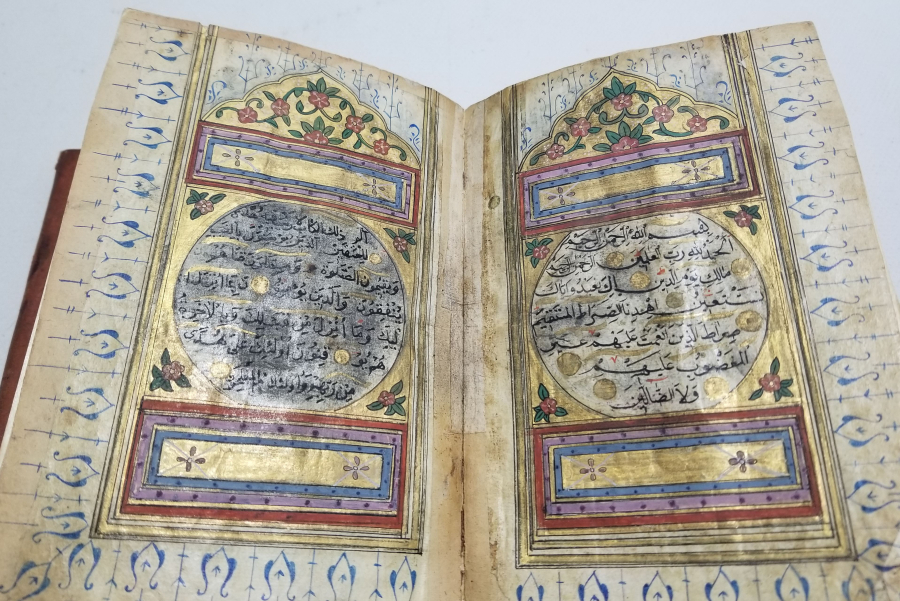 بسم الله الرحمن الرحيم
الحمد لله رب العالمين الرحمن الرحيم
مالك يوم الدين اياك نعبد واياك
نستعين اهدنا الصراط المستقيم
صراط الذين انعمت عليهم غير
المغضوب عليهم
ولا الضالين
الم ذلك الكتاب
للمتقين الذين
ويقيمون الصلوة
ينفقون والذين يؤمنون بما انزل
اليك وما انزل من قبلك وبالاخرة
هم يوقنون اولئك على هدى
من ربهم واولئك هم المفلحون